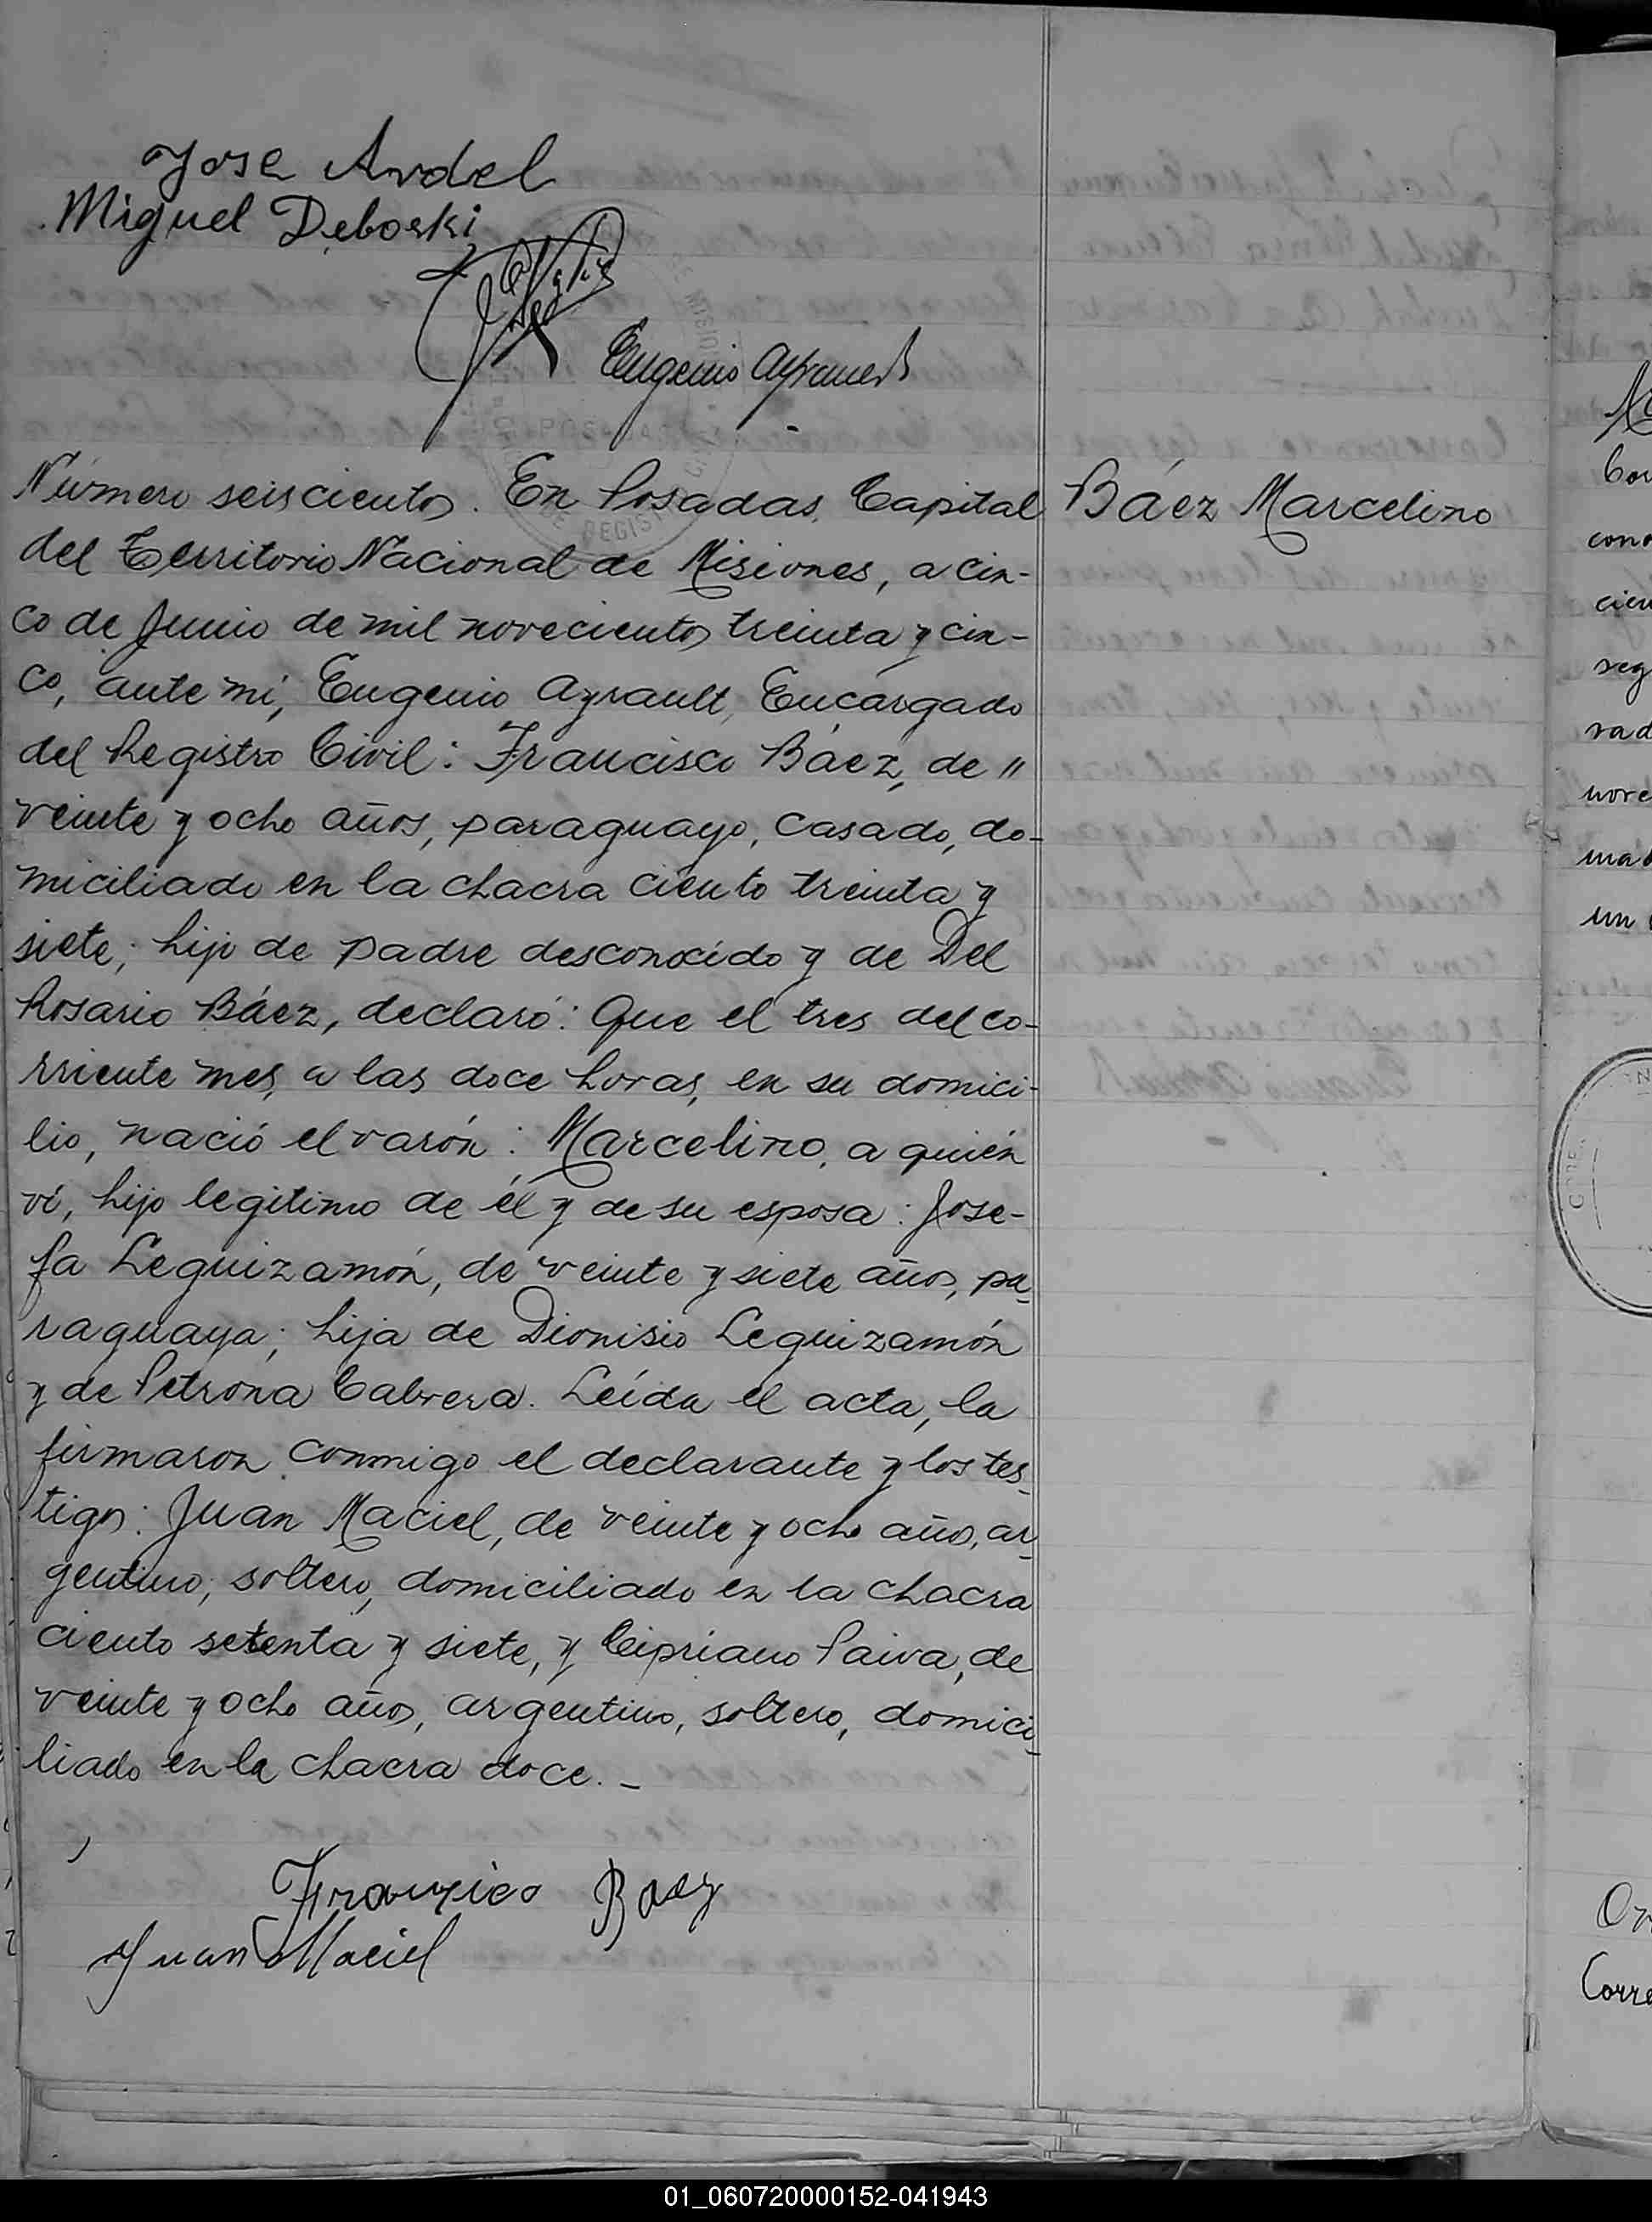 Jose Andel
Miguel Deboski
Eugenio Ayrault
Número seiscientos. En Posadas, Capital
Báez Marcelino
del Territorio Nacional de Misiones, a cin-
co de Junio de mil novecientos treinta y cin-
co, ante mí, Eugenio Ayrault, Encargado
del Registro Civil: Francisco Báez, de "
veinte y ocho años, paraguayo, casado, do-
miciliado en la chacra ciento treinta y
siete; hijo de padre desconocido y de Del
Rosario Báez, declaró: Que el tres del co-
rriente mes, a las doce horas, en su domici-
lio, nació el varón: Marcelino, a quién
ví, hijo legítimo de él y de su esposa: Jose-
fa Leguizamón, de veinte y siete años, pa-
raguaya; hija de Dionisio Leguizamón
y de Petrona Cabrera. Leída el acta, la
firmaron conmigo el declarante y los tes-
tigos: Juan Maciel, de veinte y ocho años, ar-
gentino, soltero, domiciliado en la chacra
ciento setenta y siete, y Cipriano Paiva, de
veinte y ocho años, argentino, soltero, domici-
liado en la chacra doce. -
Franxico Baez
Juan Maciel
01_060720000152-041943